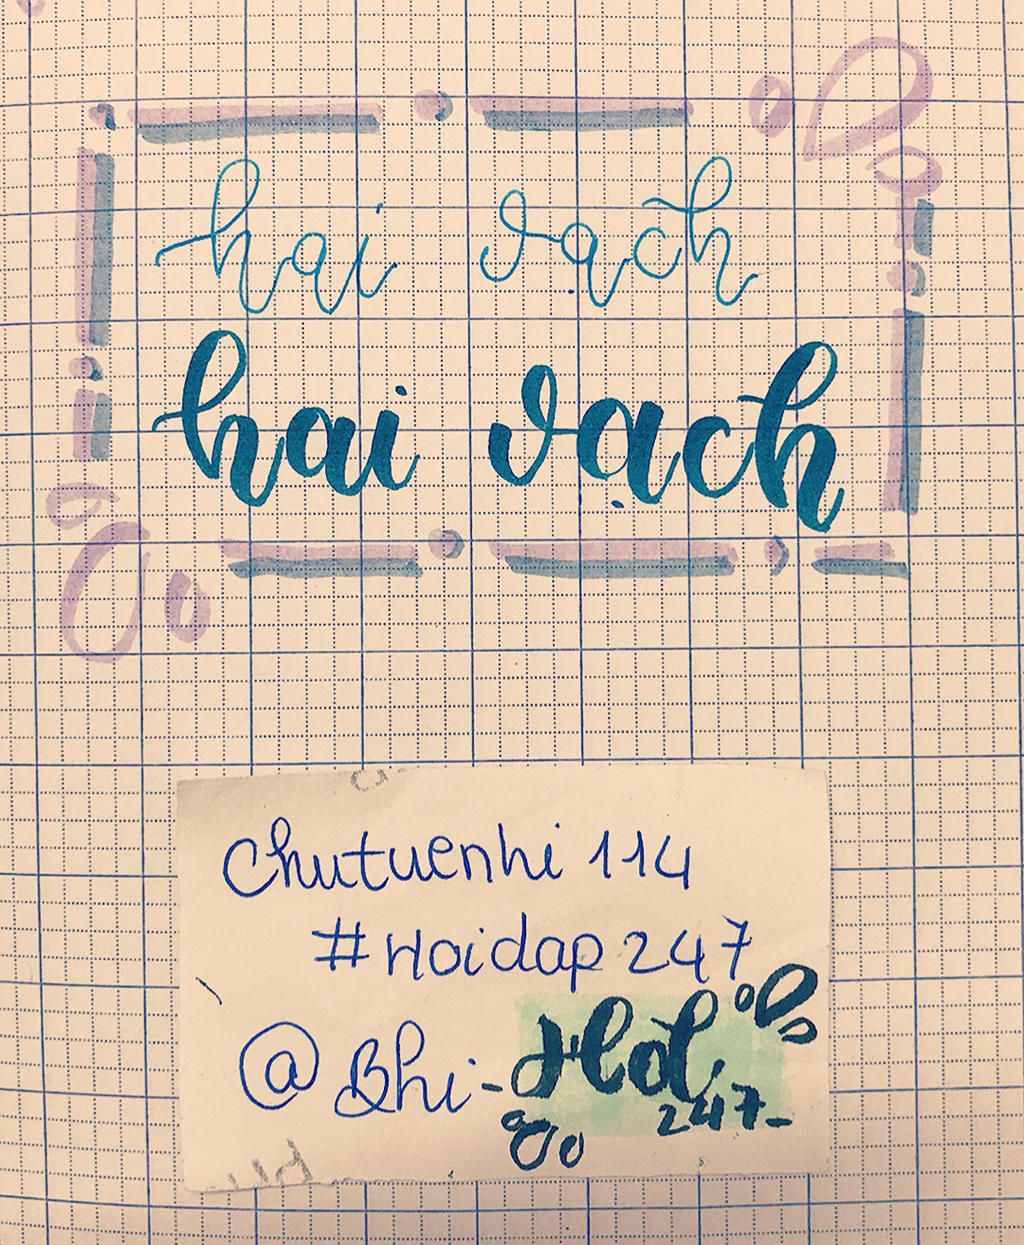 hai vạch
hai vạch
Chutuenhi 114
#Hoidap247
@Bhi-Hoi
247-